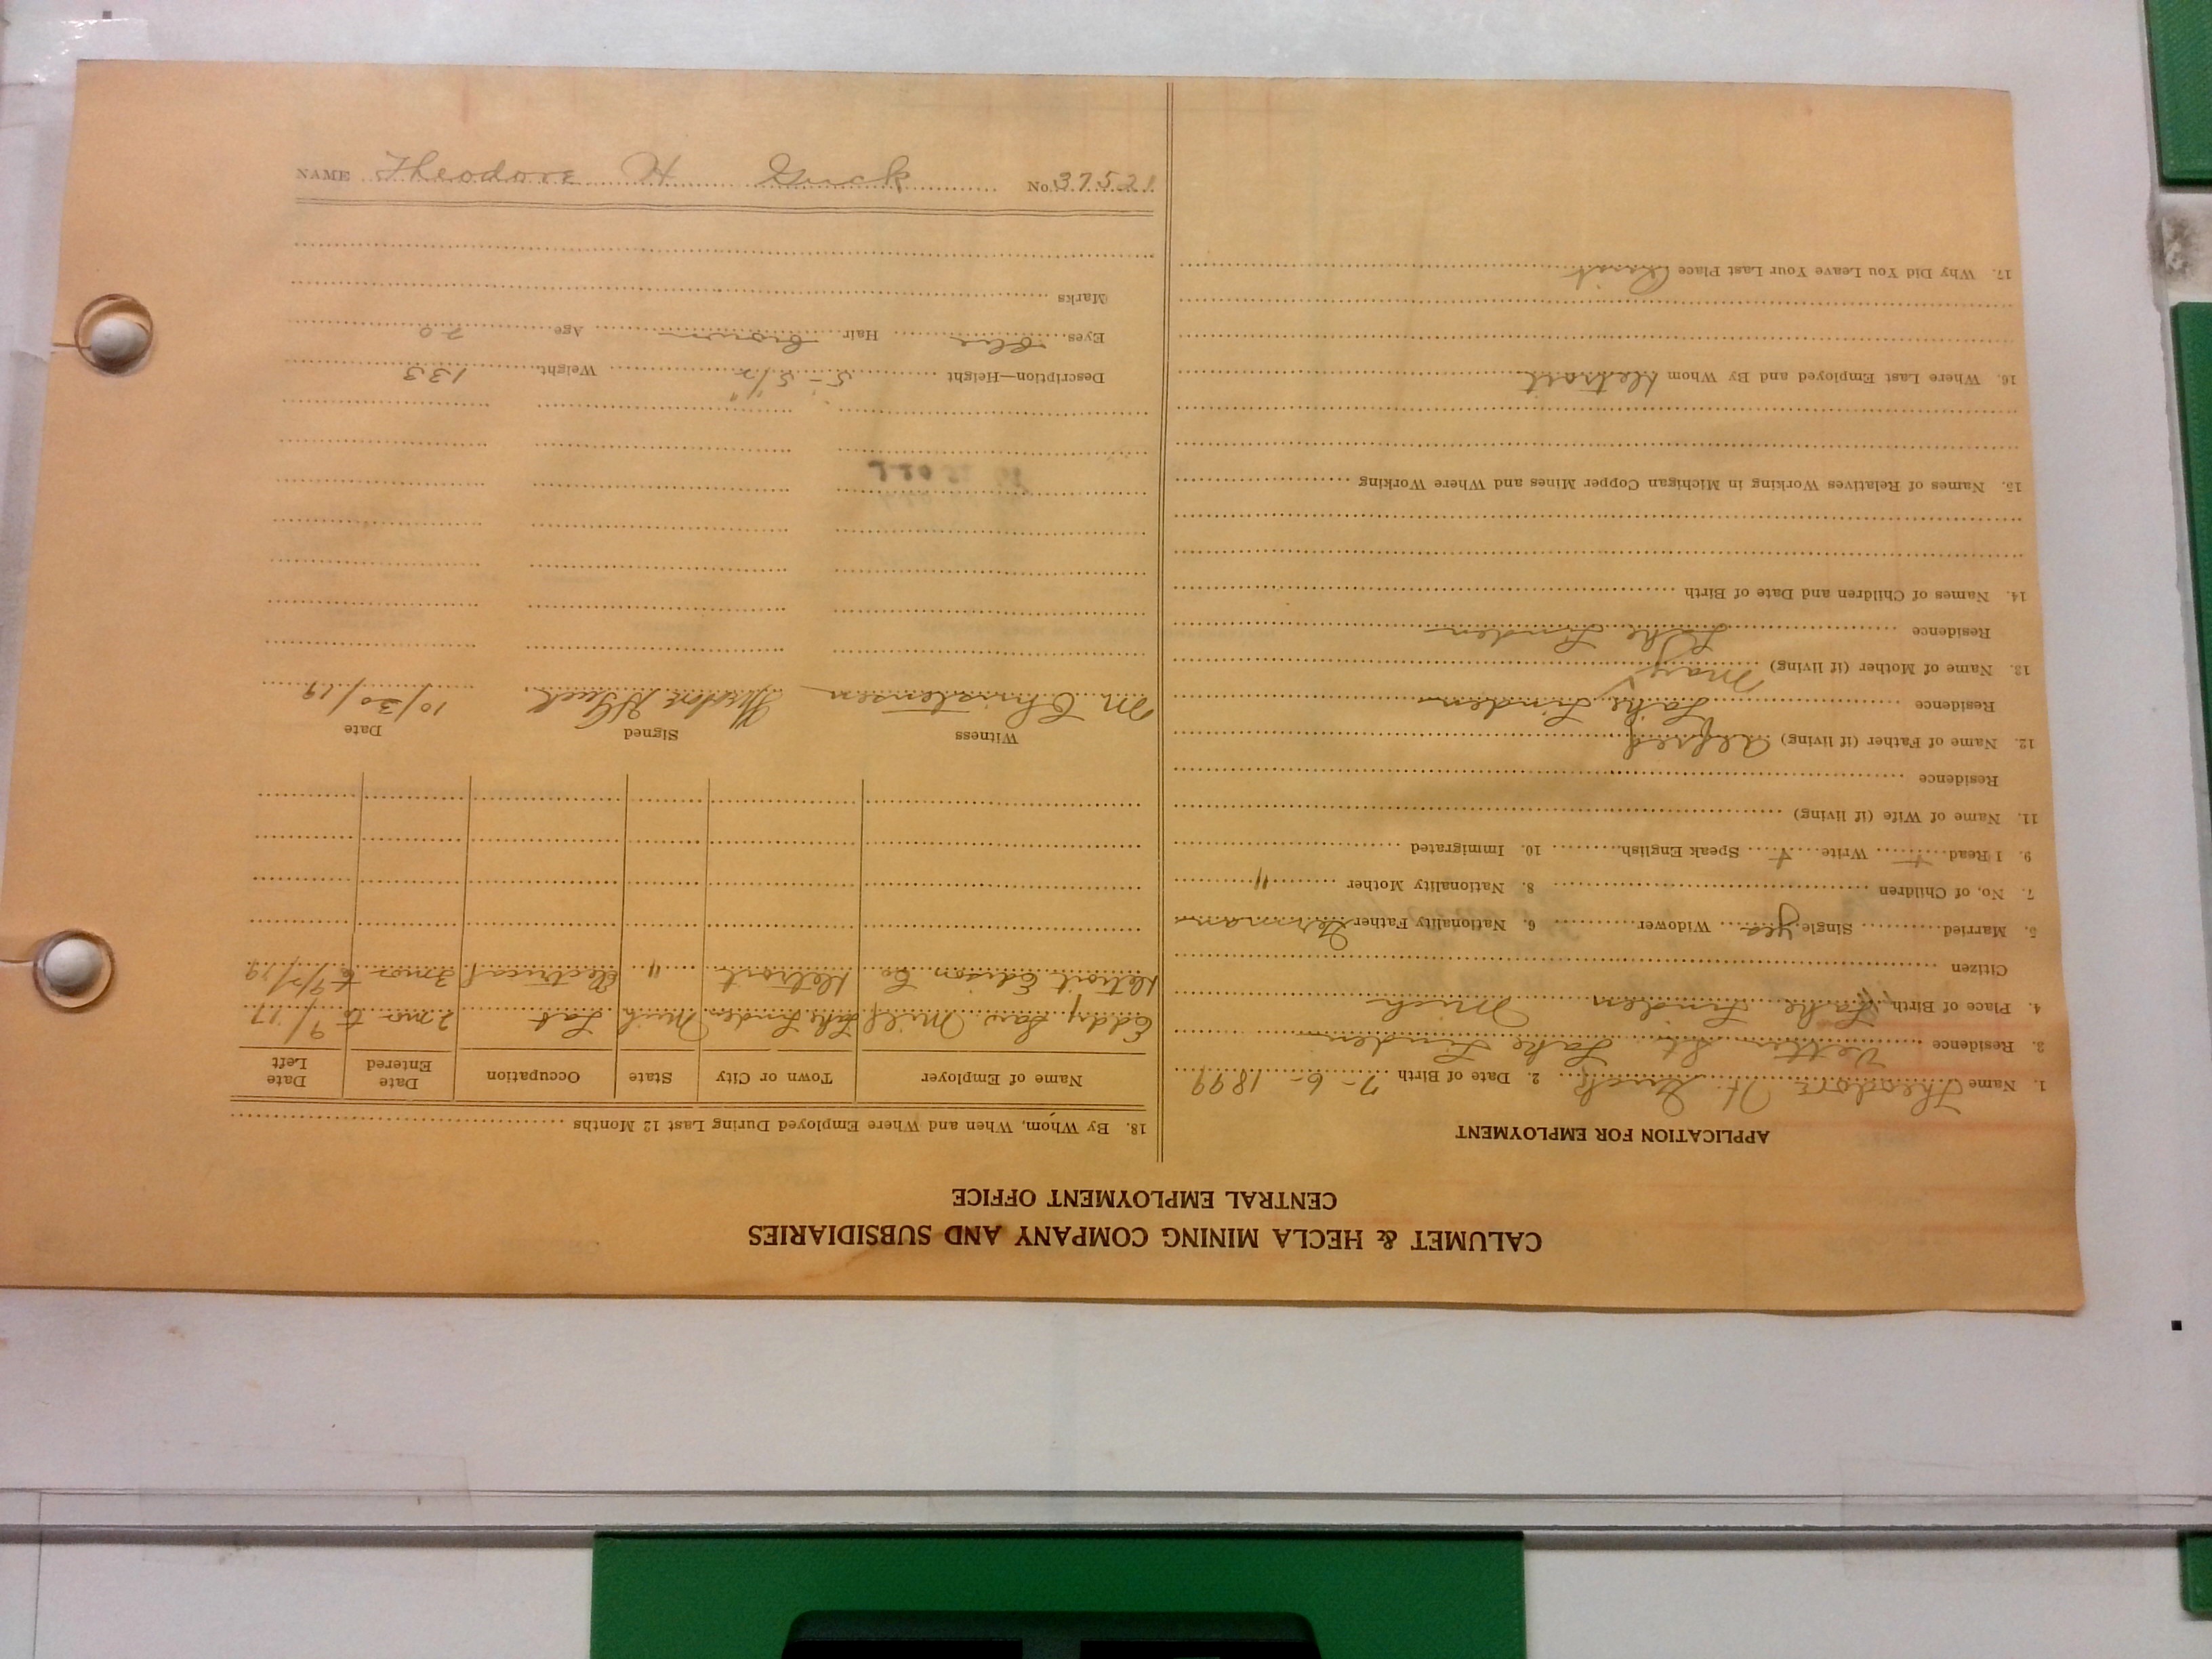 CALUMET & HECLA MINING COMPANY AND SUBSIDIARIES
CENTRAL EMPLOYMENT OFFICE
APPLICATION FOR EMPLOYMENT
1. Name Theodore H. Guck 2. Date of Birth 7-6-1899
3. Residence St. Lake Linden
4. Place of Birth Lake Linden Mich
Citizen
5. Married Single yes Widower 6. Nationality Father German
7. No. of Children 8. Nationality Mother "
9. I Read + Write + Speak English 10. Immigrated
11. Name of Wife (if living)
Residence
12. Name of Father (if living) Alfred
Residence Lake Linden
13. Name of Mother (if living) Mary
Residence Lake Linden
14. Names of Children and Date of Birth
15. Names of Relatives Working in Michigan Copper Mines and Where Working
16. Where Last Employed and By Whom Detroit
17. Why Did You Leave Your Last Place Quit
18. By Whom, When and Where Employed During Last 12 Months
Name of Employer Town or City State Occupation Date Entered Date Left
Eddy Saw Mill Lake Linden Mich Lab 2 mos to 9/17
Detroit Edison Co Detroit " Electrical 3 mos to 9/2/19
Witness Signed Date
M. Christensen Theodore H Guck 10/30/19
Description—Height 5'-5 1/2" Weight 133
Eyes blue Hair brown Age 20
Marks
NAME Theodore H Guck No. 37521